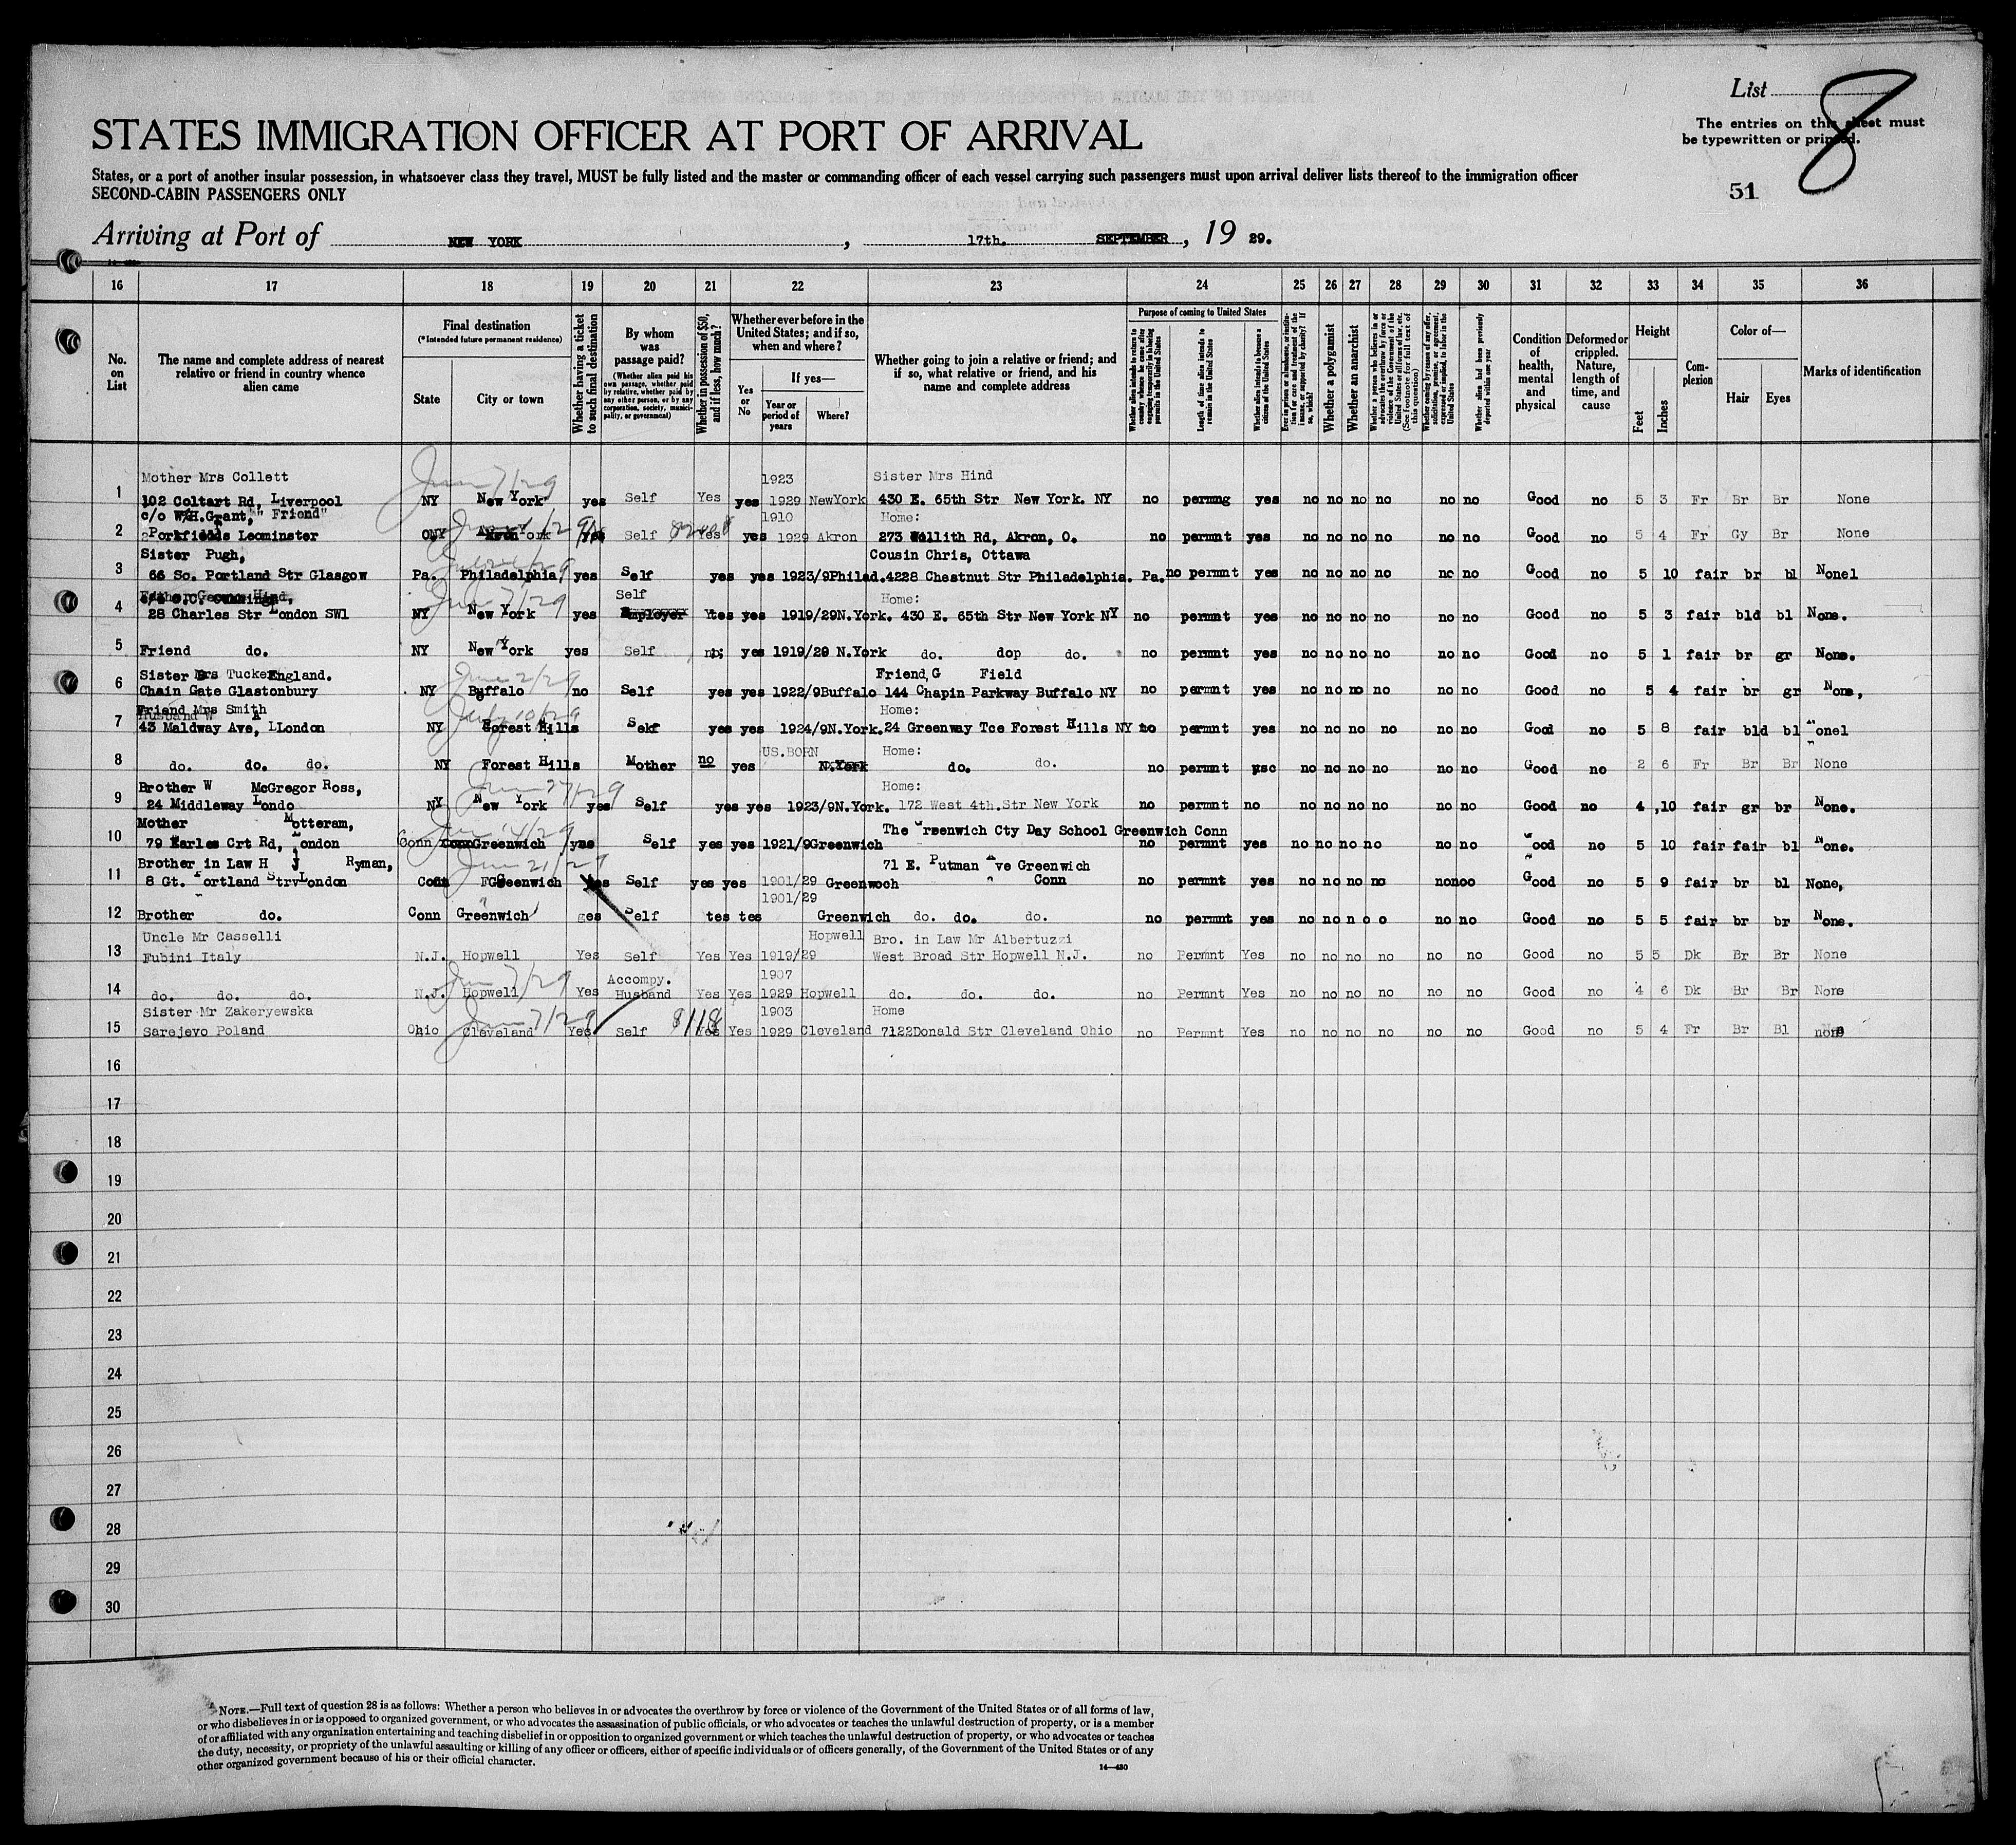 List 8
The entries on this sheet must
be typewritten or printed.
STATES IMMIGRATION OFFICER AT PORT OF ARRIVAL
States, or a port of another insular possession, in whatsoever class they travel, MUST be fully listed and the master or commanding officer of each vessel carrying such passengers must upon arrival deliver lists thereof to the immigration officer
SECOND-CABIN PASSENGERS ONLY
51
Arriving at Port of NEW YORK, 17th. SEPTEMBER, 19 29.
16 17 18 19 20 21 22 23 24 25 26 27 28 29 30 31 32 33 34 35 36
No. on List
The name and complete address of nearest relative or friend in country whence alien came
Final destination
(*Intended future permanent residence)
State
City or town
Whether having a ticket to such final destination
By whom was passage paid?
(Whether alien paid his own passage, whether paid by relative, whether paid by any other person, or by any corporation, society, municipality, or government)
Whether in possession of $50, and if less, how much?
Whether ever before in the United States; and if so, when and where?
Yes or No
If yes—
Year or period of years
Where?
Whether going to join a relative or friend; and if so, what relative or friend, and his name and complete address
Purpose of coming to United States
Length of time alien intends to remain in the United States
Whether alien intends to become a citizen of the United States
Whether a polygamist
Whether an anarchist
Condition of health, mental and physical
Deformed or crippled. Nature, length of time, and cause
Height
Feet
Inches
Complexion
Color of—
Hair
Eyes
Marks of identification
Mother Mrs Collett 1923 Sister Mrs Hind
1 102 Coltart Rd, Liverpool NY New York yes Self Yes yes 1929 NewYork 430 E. 65th Str New York. NY no permng yes no no no no no no Good no 5 3 Fr Br Br None
June 7/29
c/o W.H.Grant, "Friend" 1910 Home:
2 Leominster Self Yes yes 1929 Akron 273 Wollith Rd, Akron, O. no permnt yes no no no no no no Good no 5 4 Fr Gy Br None
Sister Pugh, Cousin Chris, Ottawa
3 66 So. Portland Str Glasgow Pa. Philadelphia, yes Self yes yes 1923/9 Philad. 4228 Chestnut Str Philadelphia. Pa. no permnt yes no no no no no no Good no 5 10 fair br bl Nonel
Self Home:
4 28 Charles Str London SW1 NY New York yes Employer yes 1919/29 N.York. 430 E. 65th Str New York NY no permnt yes no no no no no no Good no 5 3 fair bld bl None.
June 7/29
5 Friend do. NY New York yes Self no; yes 1919/29 N.York do. dop do. no permnt yes no no no no no no Good no 5 1 fair br gr None.
Sister Mrs Tucker England. Friend, G Field
6 Chain Gate Glastonbury NY Buffalo no Self yes yes 1922/9 Buffalo 144 Chapin Parkway Buffalo NY no permnt yes no no no no no no Good no 5 4 fair br gr None,
June 2/29
Friend Mrs Smith Home:
7 43 Maldway Ave, LLondon NY Forest Hills Sekf yes yes 1924/9 N.York. 24 Greenway Tce Forest Hills NY no permnt yes no no no no no no Good no 5 8 fair bld bl nonel
July 10/29
US.BORN Home:
8 do. do. do. NY Forest Hills Mother no yes N.York do. do. no permnt usc no no no no no no Good no 2 6 Fr Br Br None
Brother W McGregor Ross, Home:
9 24 Middleway Londo NY New York yes Self yes yes 1923/9 N.York. 172 West 4th.Str New York no permnt no no no no no no no Good no 4 ,10 fair gr br None.
June 27/29
Mother Motteram, The Greenwich Cty Day School Greenwich Conn
10 79 Earles Crt Rd, London Conn Greenwich Self yes yes 1921/9 Greenwich no permnt yes no no no no no no Good no 5 10 fair fair bl None.
June 14/29
Brother in Law H J Ryman, 71 E. Putman Ave Greenwich
11 8 Gt. Portland Str London Conn Greenwich yes Self yes yes 1901/29 Greenwoch Conn no permnt yes no no no no nonoo Good no 5 9 fair br bl None,
June 21/29
1901/29
12 Brother do. Conn Greenwich ges Self tes tes Greenwich do. do. do. no permnt yes no no n o o no no Good no 5 5 fair br br None.
Uncle Mr Casselli Hopwell Bro. in Law Mr Albertuzzi
13 Fubini Italy N.J. Hopwell Yes Self Yes Yes 1919/29 West Broad Str Hopwell N.J. no Permnt Yes no no no no no no Good no 5 5 Dk Br Br None
Accompy. 1907
14 do. do. do. N.J. Hopwell Yes Husband Yes Yes 1929 Hopwell do. do. do. no Permnt Yes no no no no no no Good no 4 6 Dk Br Br None
June 7/29
Sister Mr Zakeryewska 1903 Home
15 Sarejevo Poland Ohio Cleveland Yes Self Yes Yes 1929 Cleveland 7122Donald Str Cleveland Ohio no Permnt Yes no no no no no no Good no 5 4 Fr Br Bl none
June 7/29
16
17
18
19
20
21
22
23
24
25
26
27
28
29
30
NOTE.—Full text of question 28 is as follows: Whether a person who believes in or advocates the overthrow by force or violence of the Government of the United States or of all forms of law,
or who disbelieves in or is opposed to organized government, or who advocates the assassination of public officials, or who advocates or teaches the unlawful destruction of property, or is a member
of or affiliated with any organization entertaining and teaching disbelief in or opposition to organized government or which teaches the unlawful destruction of property, or who advocates or teaches
the duty, necessity, or propriety of the unlawful assaulting or killing of any officer or officers, either of specific individuals or of officers generally, of the Government of the United States or of any
other organized government because of his or their official character.
14—430